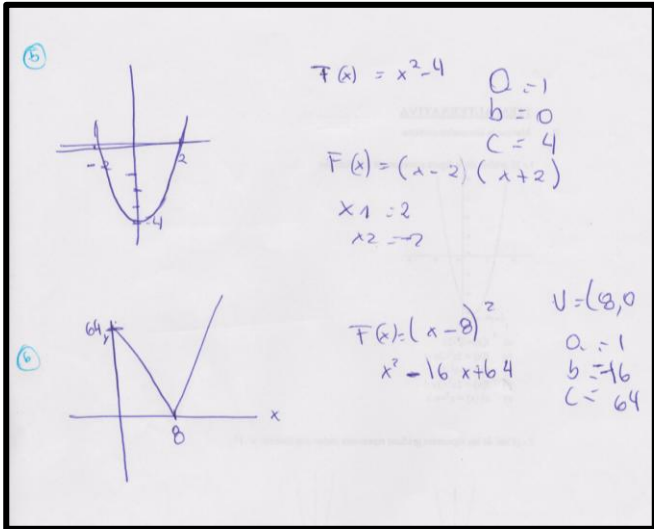 5
F(x) = x²-4
a = 1
b = 0
c = 4
-2
2
-4
F(x) = (x-2) (x+2)
x1 = 2
x2 = -2
6
64
y
8
x
F(x) = (x-8)²
x² - 16x + 64
V = (8,0
a = 1
b = -16
c = 64